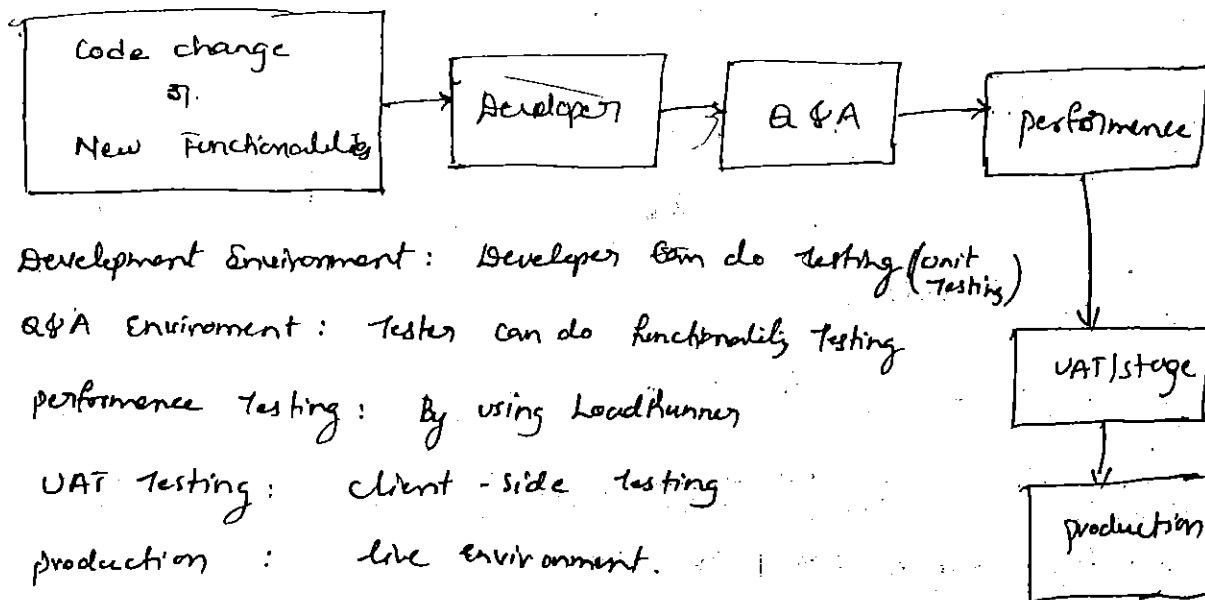 Code change
or
New Functionalities
Developer
Q&A
performence
Development Environment: Developer can do testing (unit testing)
Q&A Enviroment: Tester can do functionality Testing
performence Testing: By using LoadRunner
UAT/stage
UAT Testing: client-side testing
production
production: live environment.